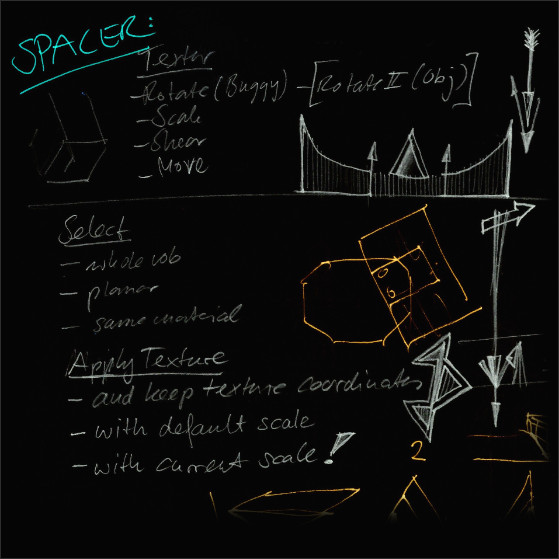 SPACER:
Textur
- Rotate (Buggy) - [Rotate II (Obj)]
- Scale
- Shear
- Move
Select
- whole vob
- planar
- same material
Apply Texture
- and keep texture coordinates
- with default scale
- with current scale!
2